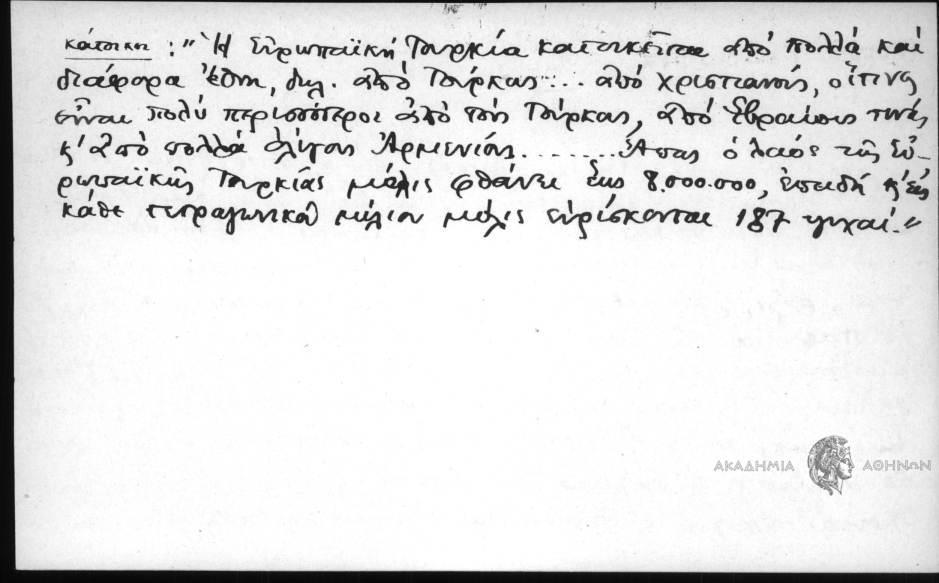 κάτοικοι : "Ἡ Εὐρωπαϊκή Τουρκία κατοικεῖται ἀπό πολλά καί
διάφορα ἔθνη, δηλ. ἀπό Τούρκους ... ἀπό χριστιανούς, οἵτινες
εἶναι πολύ περισσότεροι ἀπό τούς Τούρκους, ἀπό Ἑβραίους τινάς
κ' ἀπό πολλά ὀλίγους Ἀρμενίους ........ Ἅπας ὁ λαός τῆς Εὐ-
ρωπαϊκῆς Τουρκίας μόλις φθάνει ἕως 8.000.000, ἐπειδή κ' εἰς
κάθε τετραγωνικόν μίλιον μόλις εὑρίσκονται 187 ψυχαί."
ΑΚΑΔΗΜΙΑ ΑΘΗΝΩΝ